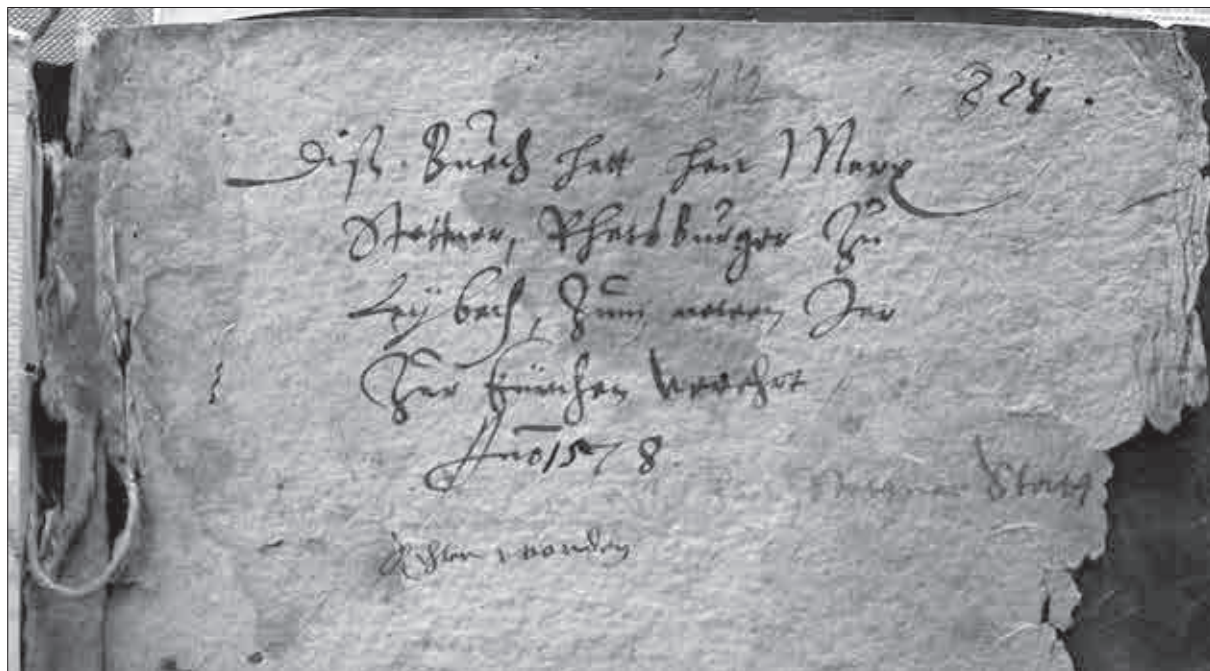 224.
Diß Buech hatt herr Marx
Stettner, Rhatsburger Zu
Leÿbach, Zum newen Jar
Zur Kürchen verehrt
Anno 1578
worden